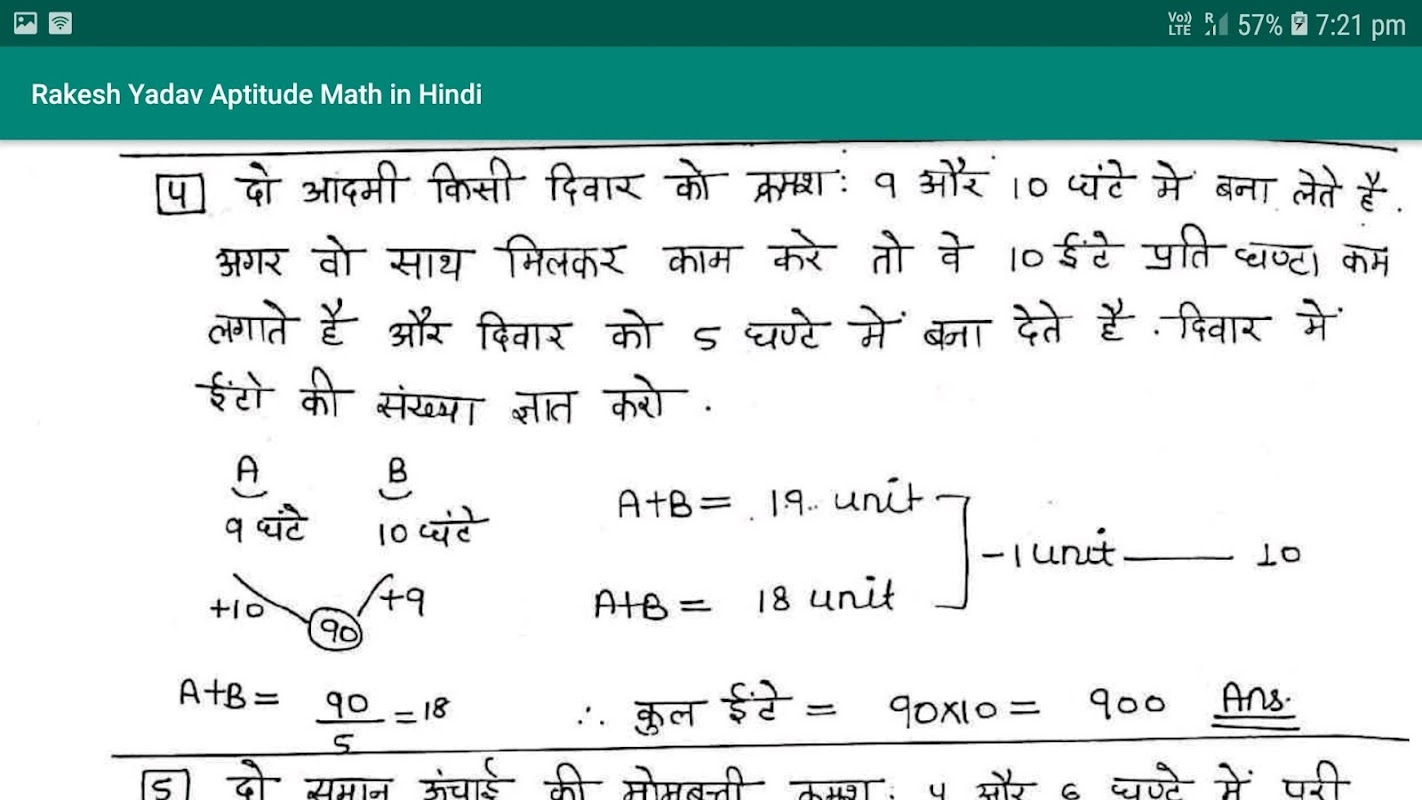 Vo)) LTE R 57% 7:21 pm
Rakesh Yadav Aptitude Math in Hindi
4 दो आदमी किसी दिवार को क्रमश: 9 और 10 घंटे मे बना लेते है.
अगर वो साथ मिलकर काम करे तो वे 10 ईंटे प्रति घण्टा कम
लगाते है और दिवार को 5 घण्टे में बना देते है. दिवार में
ईंटो की संख्या ज्ञात करो.
A B
9 घंटे 10 घंटे
A+B = 19 unit
-1 unit — 10
A+B = 18 unit
+10 +9
90
A+B = 90/5 = 18 ∴ कुल ईंटे = 90x10 = 900 Ans.
5 दो समान ऊंचाई की मोमबत्ती क्रमश: 4 और 6 घण्टे में पूरी